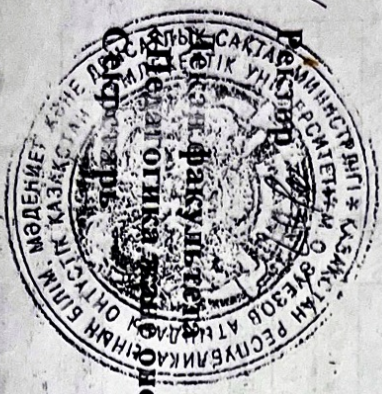 Ректор
Декан факультета
Секретарь
ҚАЗАҚСТАН РЕСПУБЛИКАСЫНЫҢ БІЛІМ, МӘДЕНИЕТ ЖӘНЕ ДЕНСАУЛЫҚ САҚТАУ МИНИСТРЛІГІ *
М.О.ӘУЕЗОВ АТЫНДАҒЫ ОҢТҮСТІК ҚАЗАҚСТАН МЕМЛЕКЕТТІК УНИВЕРСИТЕТІ